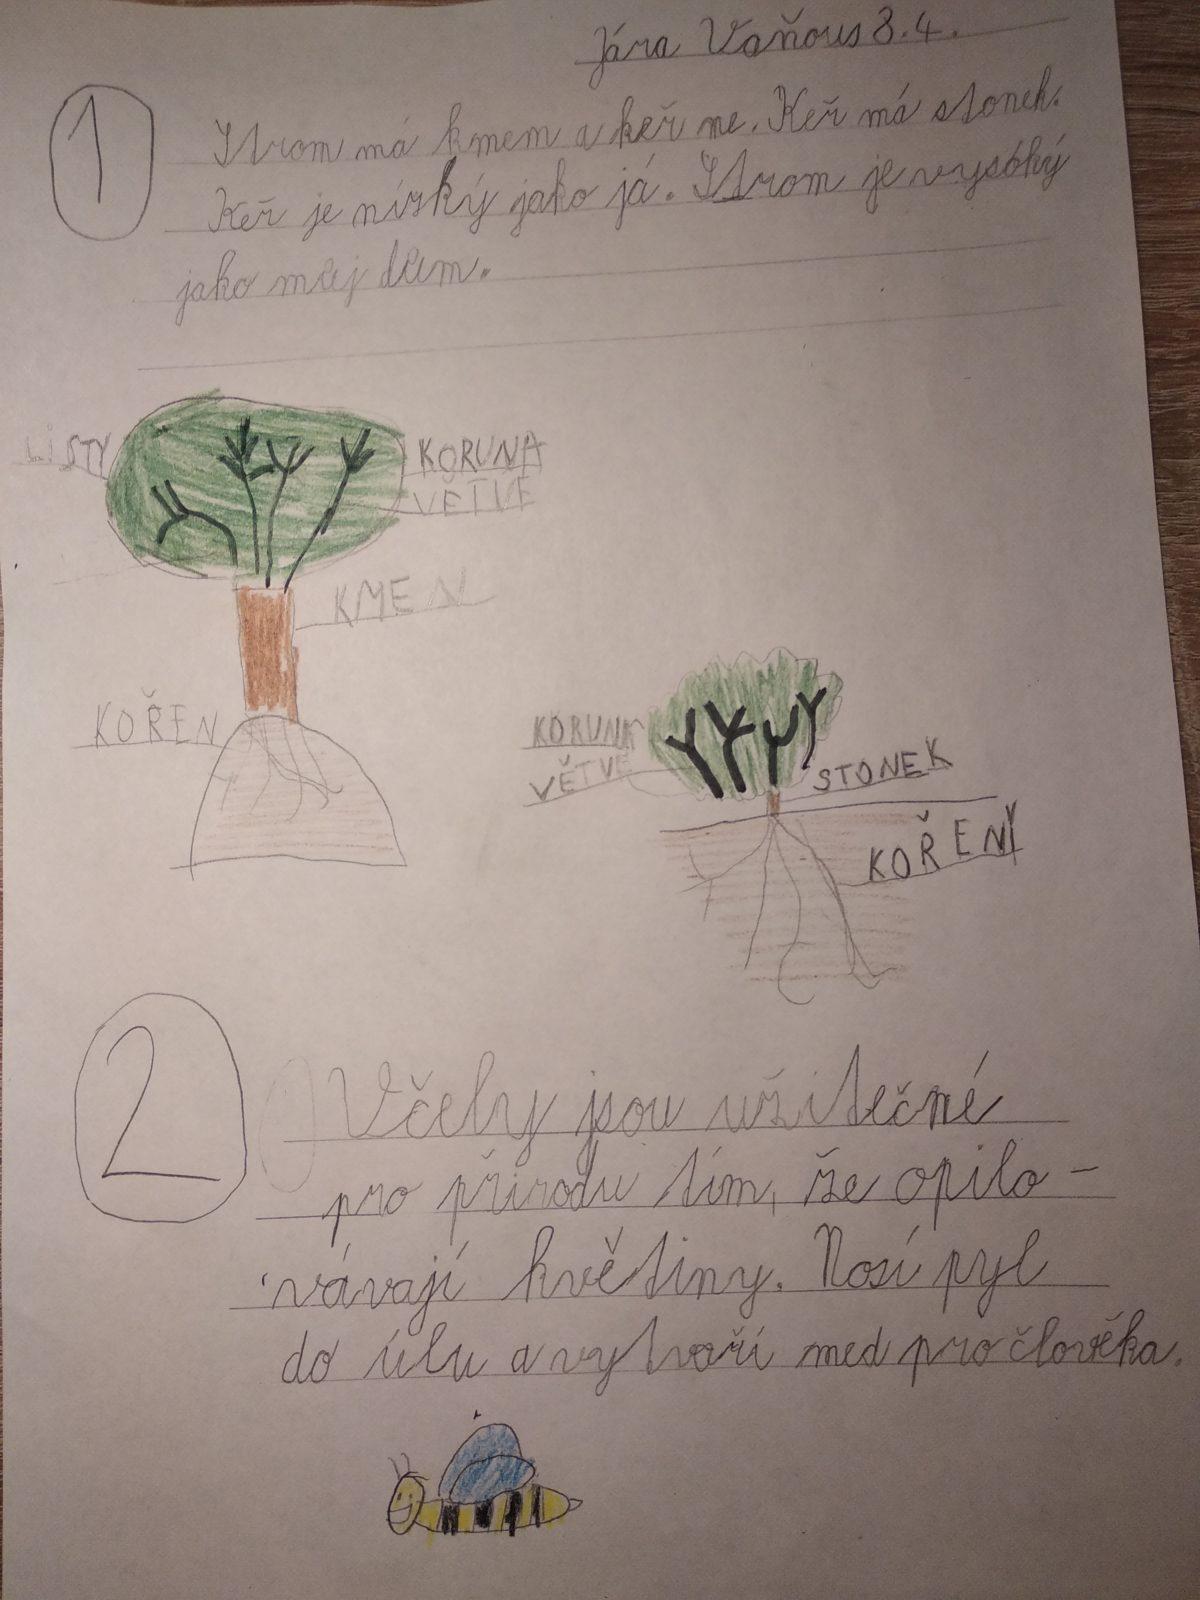 Jára Vaňous 8.4.
1
Strom má kmem a keř ne. Keř má stonek.
Keř je nízký jako já. Strom je vysóký
jako muj dum.
LiSTY
KORUNA
VETVE
KMEN
KOŘEN
KORUNA
VĚTVE
STONEK
KOŘENY
2
Včely jsou užitečné
pro přírodu tím, že opilo-
vávají květiny. Nosí pyl
do úlu a vytvoří med pro člověka.